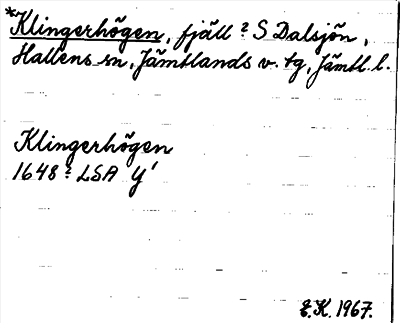 *Klingerhögen, fjäll ? S Dalsjön,
Hallens sn, Jämtlands v. tg, Jämtl. l.
Klingerhögen
1648? LSA Y¹
E.K. 1967.